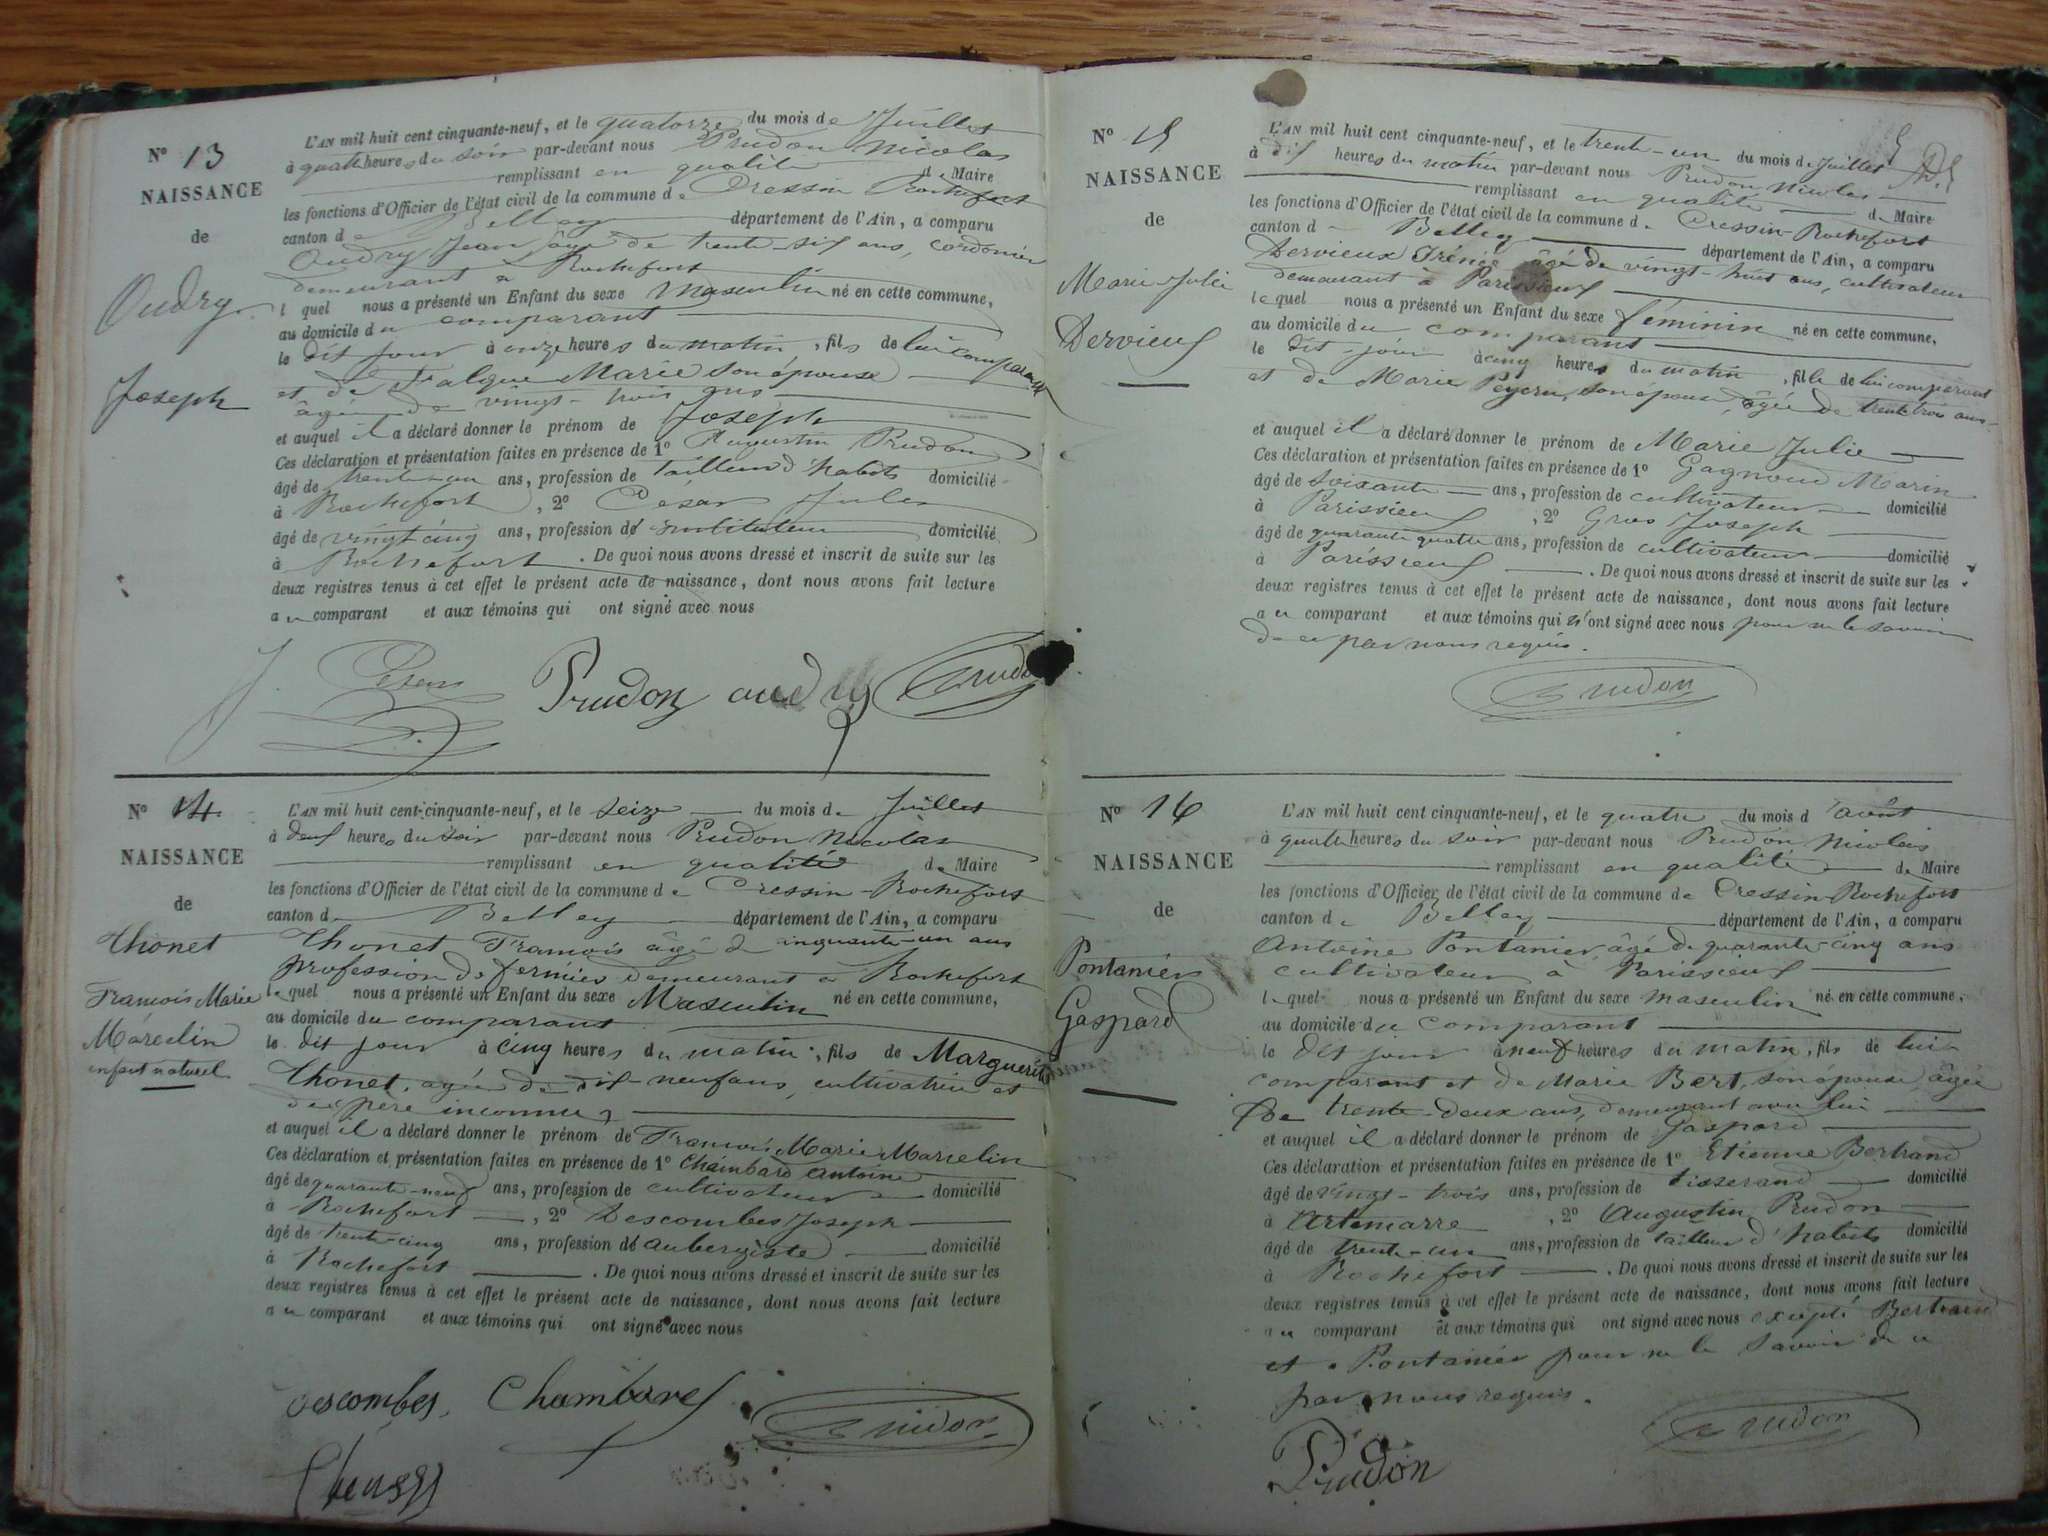 N° 13
NAISSANCE
de
Oudry
Joseph
L'AN mil huit cent cinquante-neuf, et le quatorze du mois de Juillet
à quatre heures du soir par-devant nous Prudon Nicolas
remplissant en qualité de Maire
les fonctions d'Officier de l'état civil de la commune de Cressin Rochefort
canton de Belley département de l'Ain, a comparu
Oudry Jean âgé de trente-six ans, cordonier
demeurant à Rochefort
lequel nous a présenté un Enfant du sexe masculin né en cette commune,
au domicile du comparant
le dit jour à onze heures du matin, fils de lui comparant
et de Falque Marie son épouse
âgée de vingt-trois ans
et auquel il a déclaré donner le prénom de Joseph
Ces déclaration et présentation faites en présence de 1° Augustin Prudon
âgé de trente-un ans, profession de tailleur d'habits domicilié
à Rochefort, 2° César Jules
âgé de vingt cinq ans, profession de instituteur domicilié
à Rochefort. De quoi nous avons dressé et inscrit de suite sur les
deux registres tenus à cet effet le présent acte de naissance, dont nous avons fait lecture
au comparant et aux témoins qui ont signé avec nous
J. César Prudon oudry Prudon
N° 14
NAISSANCE
de
Thonet
François Marie
Marcelin
enfant naturel
L'AN mil huit cent cinquante-neuf, et le seize du mois de Juillet
à deux heures du soir par-devant nous Prudon Nicolas
remplissant en qualité de Maire
les fonctions d'Officier de l'état civil de la commune de Cressin-Rochefort
canton de Belley département de l'Ain, a comparu
Thonet François âgé de cinquante-un ans
profession de fermier demeurant à Rochefort
lequel nous a présenté un Enfant du sexe Masculin né en cette commune,
au domicile du comparant
le dit jour à cinq heures du matin, fils de Marguerite
Thonet, agée de dix-neuf ans, cultivatrice et
de père inconnu
et auquel il a déclaré donner le prénom de François Marie Marcelin
Ces déclaration et présentation faites en présence de 1° Chambard Antoine
âgé de quarante-neuf ans, profession de cultivateur domicilié
à Rochefort, 2° Descombes Joseph
âgé de trente-cinq ans, profession de aubergiste domicilié
à Rochefort. De quoi nous avons dressé et inscrit de suite sur les
deux registres tenus à cet effet le présent acte de naissance, dont nous avons fait lecture
au comparant et aux témoins qui ont signé avec nous
descombes, Chambare Prudon
N° 15
NAISSANCE
de
Marie Julie
Dervieux
L'AN mil huit cent cinquante-neuf, et le trente-un du mois de Juillet
à dix heures du matin par-devant nous Prudon Nicolas
remplissant en qualité de Maire
les fonctions d'Officier de l'état civil de la commune de Cressin-Rochefort
canton de Belley département de l'Ain, a comparu
Dervieux Irénée âgé de vingt-huit ans, cultivateur
demeurant à Parissieux
lequel nous a présenté un Enfant du sexe féminin né en cette commune,
au domicile du comparant
le dit-jour à cinq heures du matin, fille de lui comparant
et de Marie Peyeru, son épouse, âgée de trente trois ans
et auquel il a déclaré donner le prénom de Marie Julie
Ces déclaration et présentation faites en présence de 1° Gagnoud Marin
âgé de soixante ans, profession de cultivateur domicilié
à Parissieux, 2° Gros Joseph
âgé de quarante quatre ans, profession de cultivateur domicilié
à Parissieux. De quoi nous avons dressé et inscrit de suite sur les
deux registres tenus à cet effet le présent acte de naissance, dont nous avons fait lecture
au comparant et aux témoins qui n'ont signé avec nous pour ne le savoir
de ce par nous requis.
Prudon
N° 16
NAISSANCE
de
Pontanier
Gaspard
L'AN mil huit cent cinquante-neuf, et le quatre du mois d'août
à quatre heures du soir par-devant nous Prudon Nicolas
remplissant en qualité de Maire
les fonctions d'Officier de l'état civil de la commune de Cressin Rochefort
canton de Belley département de l'Ain, a comparu
Antoine Pontanier, âgé de quarante-cinq ans
cultivateur à Parissieux
lequel nous a présenté un Enfant du sexe masculin né en cette commune,
au domicile du comparant
le dit jour à neuf heures du matin, fils de lui
comparant et de Marie Bert, son épouse âgée
de trente-deux ans, demeurant avec lui
et auquel il a déclaré donner le prénom de Gaspard
Ces déclaration et présentation faites en présence de 1° Etienne Bertrand
âgé de vingt-trois ans, profession de tisserand domicilié
à Artemarre, 2° Augustin Prudon
âgé de trente-un ans, profession de tailleur d'habits domicilié
à Rochefort. De quoi nous avons dressé et inscrit de suite sur les
deux registres tenus à cet effet le présent acte de naissance, dont nous avons fait lecture
au comparant et aux témoins qui ont signé avec nous excepté Bertrand
et Pontanier pour ne le savoir de ce
par nous requis.
Prudon Prudon